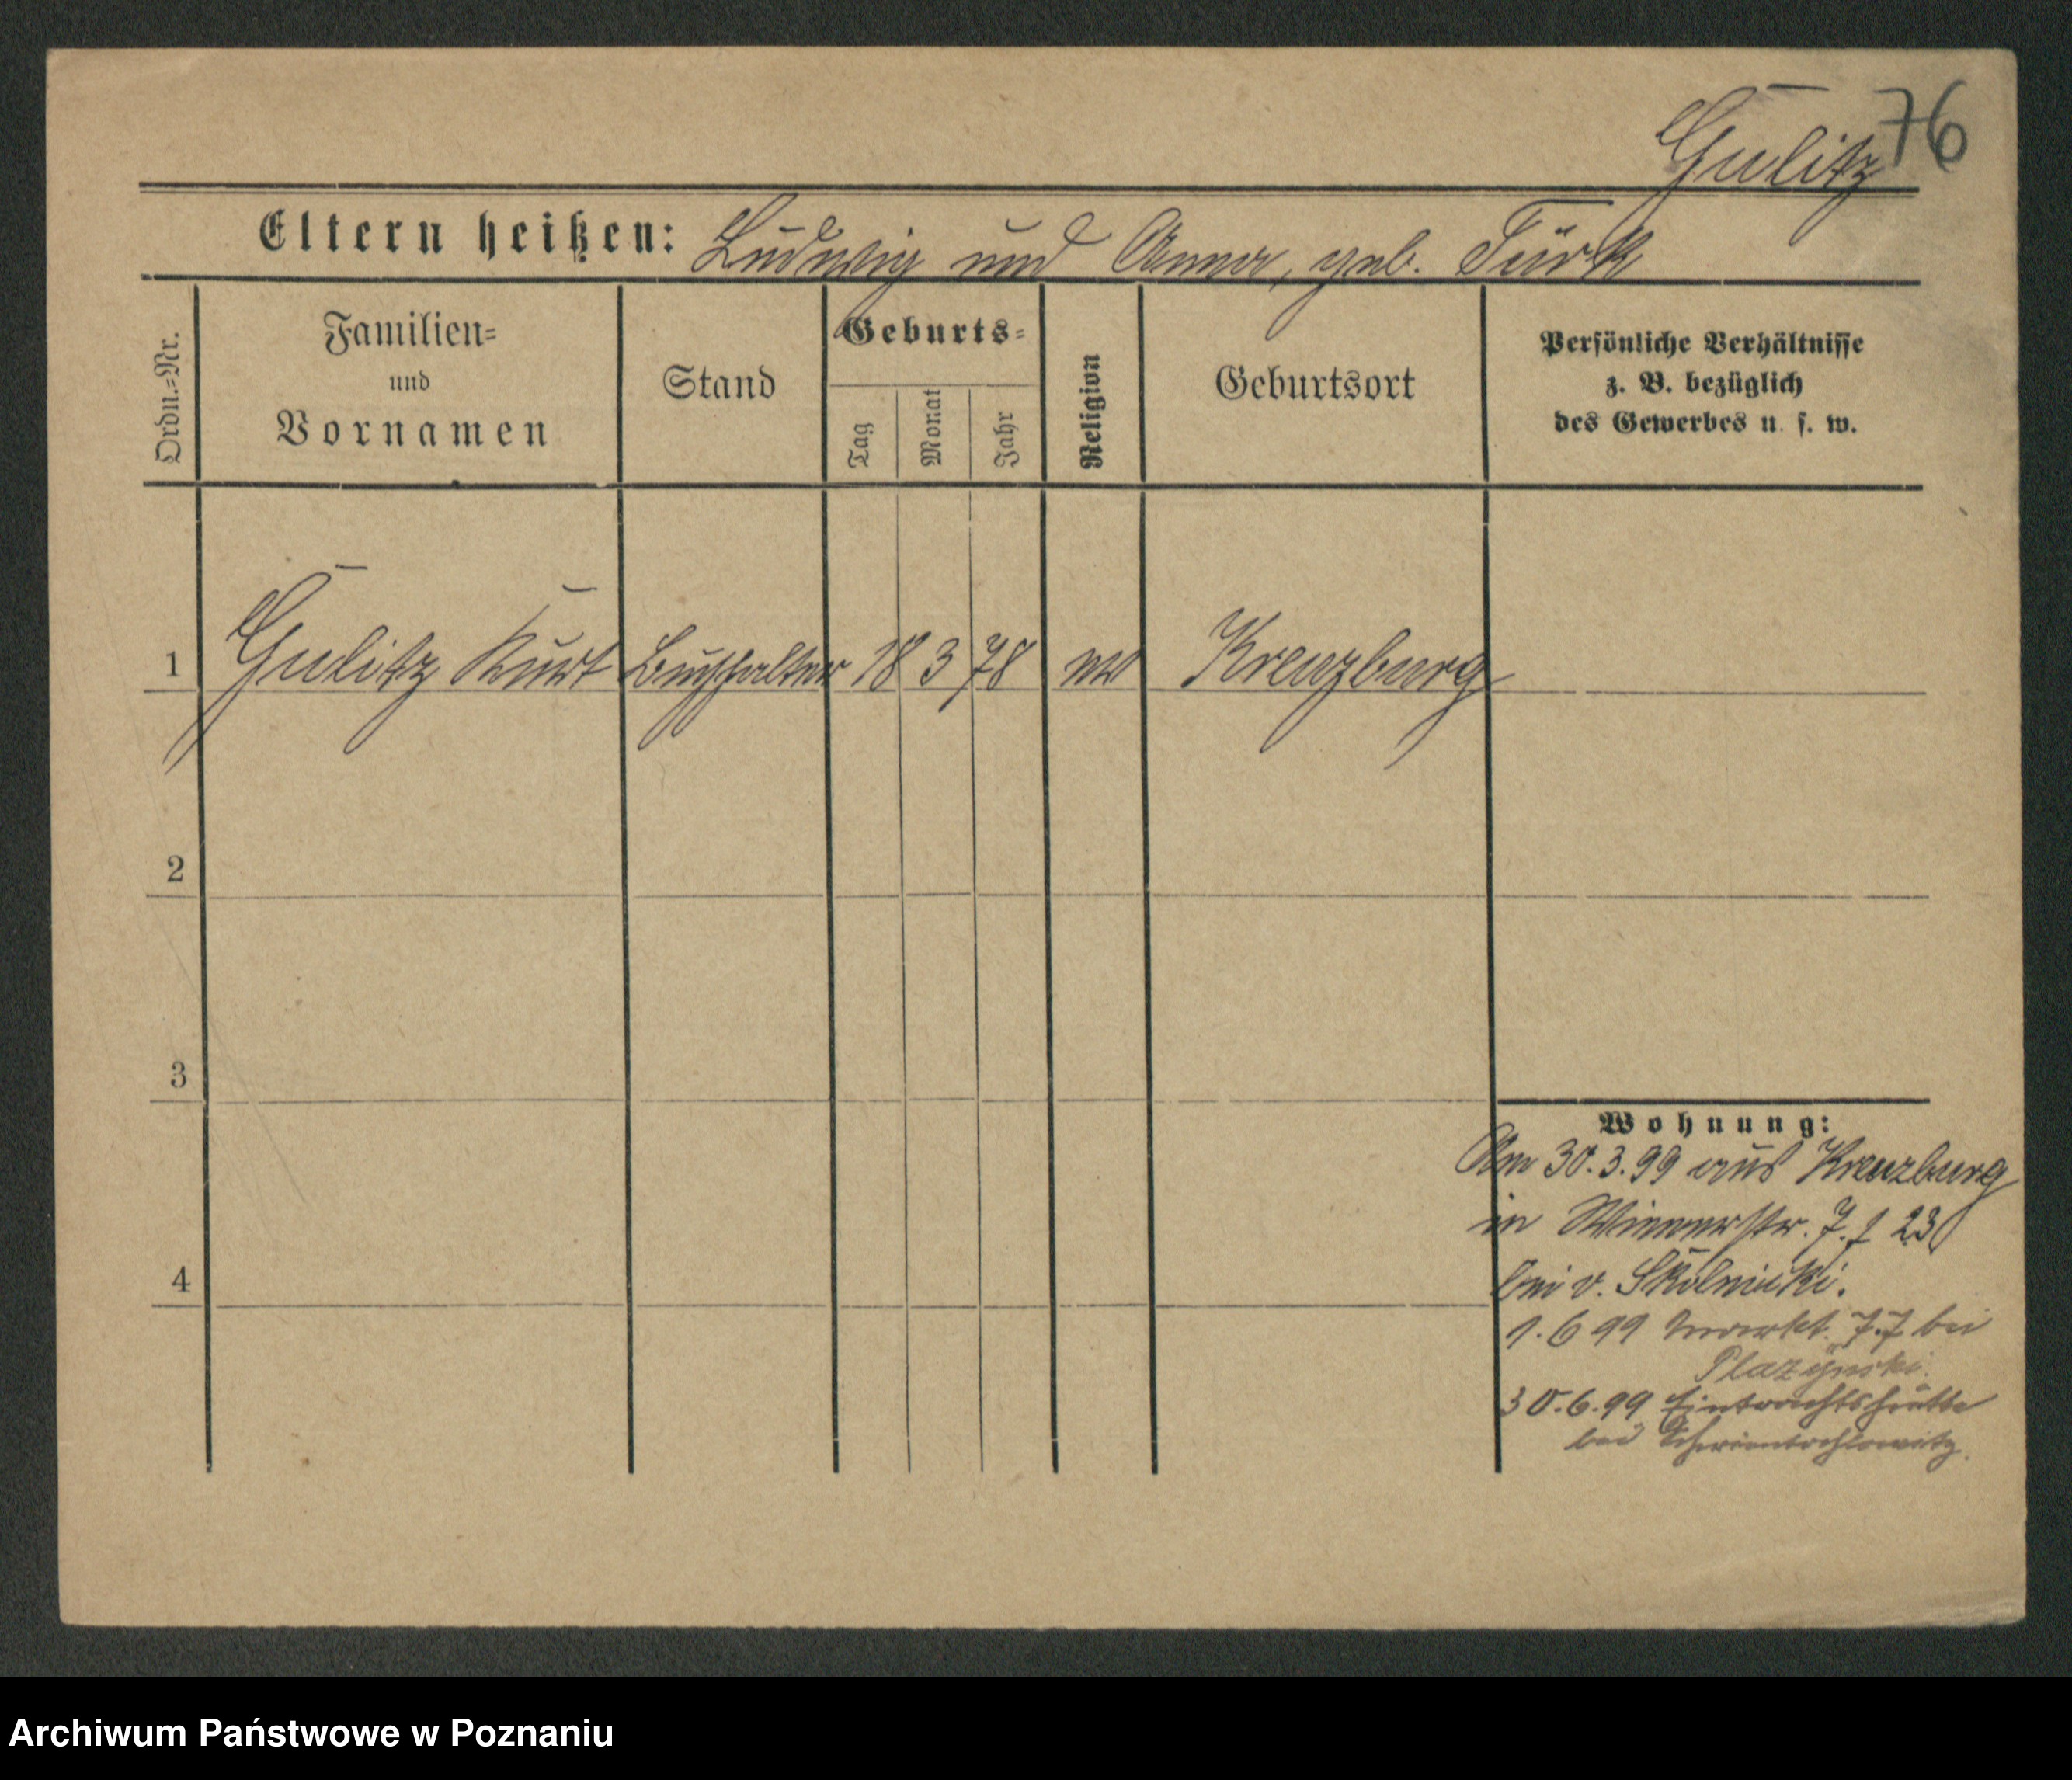 76
Gulitz
Eltern heißen: Ludwig und Anna, geb. Türk
Ordn.=Nr.
Familien=
und
Vornamen
Stand
Geburts=
Tag
Monat
Jahr
Religion
Geburtsort
Persönliche Verhältnisse
z. B. bezüglich
des Gewerbes u. s. w.
1 Gulitz Kurt Buchhalter 18 3 78 ev Kreuzburg
2
3
4
Wohnung:
Am 30.3.99 aus Kreuzburg
in Wienerstr. 7. 23
bei v. Skolnicki.
1.6 99 Markt 77 bei
Plazynski.
30.6.99 Eintrachtshütte
bei Schwientochlowitz.
Archiwum Państwowe w Poznaniu